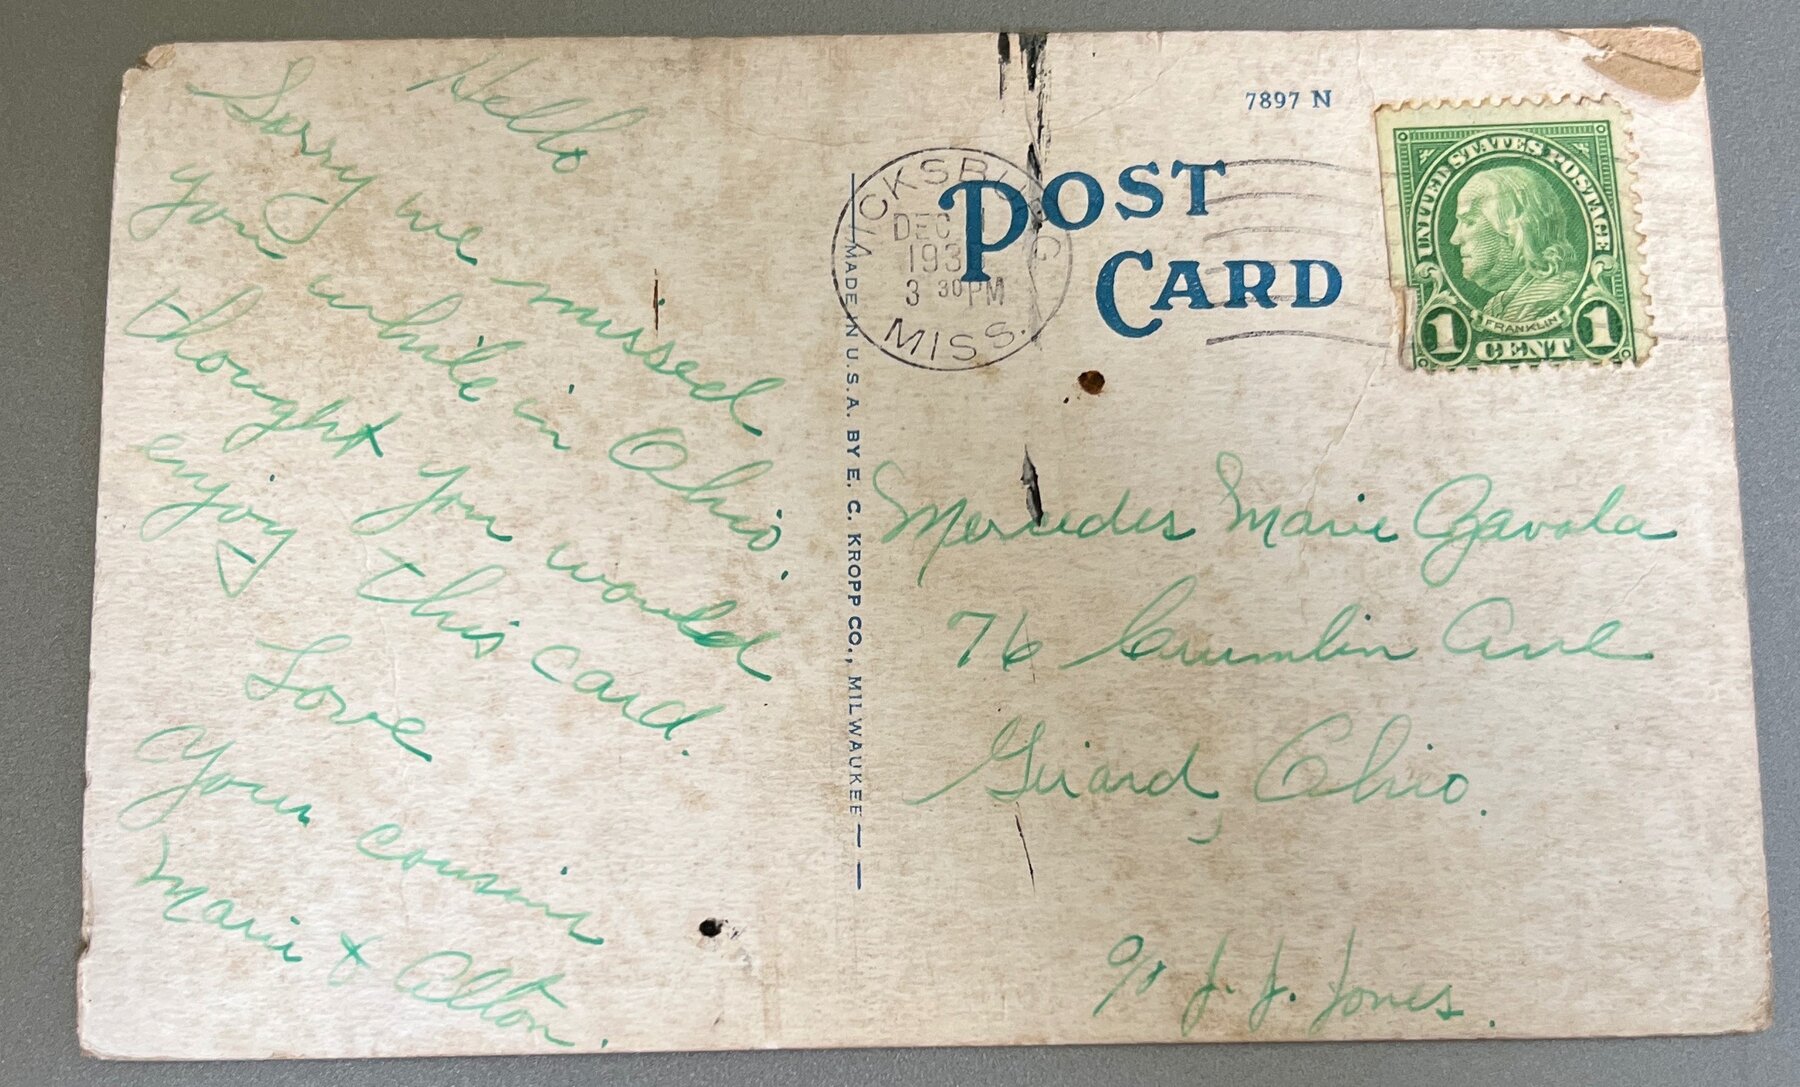 Hello
Sorry we missed
you while in Ohio.
thought you would
enjoy this card.
Love
Your cousins
Marie & Alton.
MADE IN U.S.A. BY E. C. KROPP CO., MILWAUKEE
7897 N
POST
CARD
VICKSBURG
DEC
193
3 30 PM
MISS.
UNITED STATES POSTAGE
FRANKLIN
1 CENT 1
Mercedes Marie
76 Crumlin Ave
Girard, Ohio.
c/o J. J. Jones.